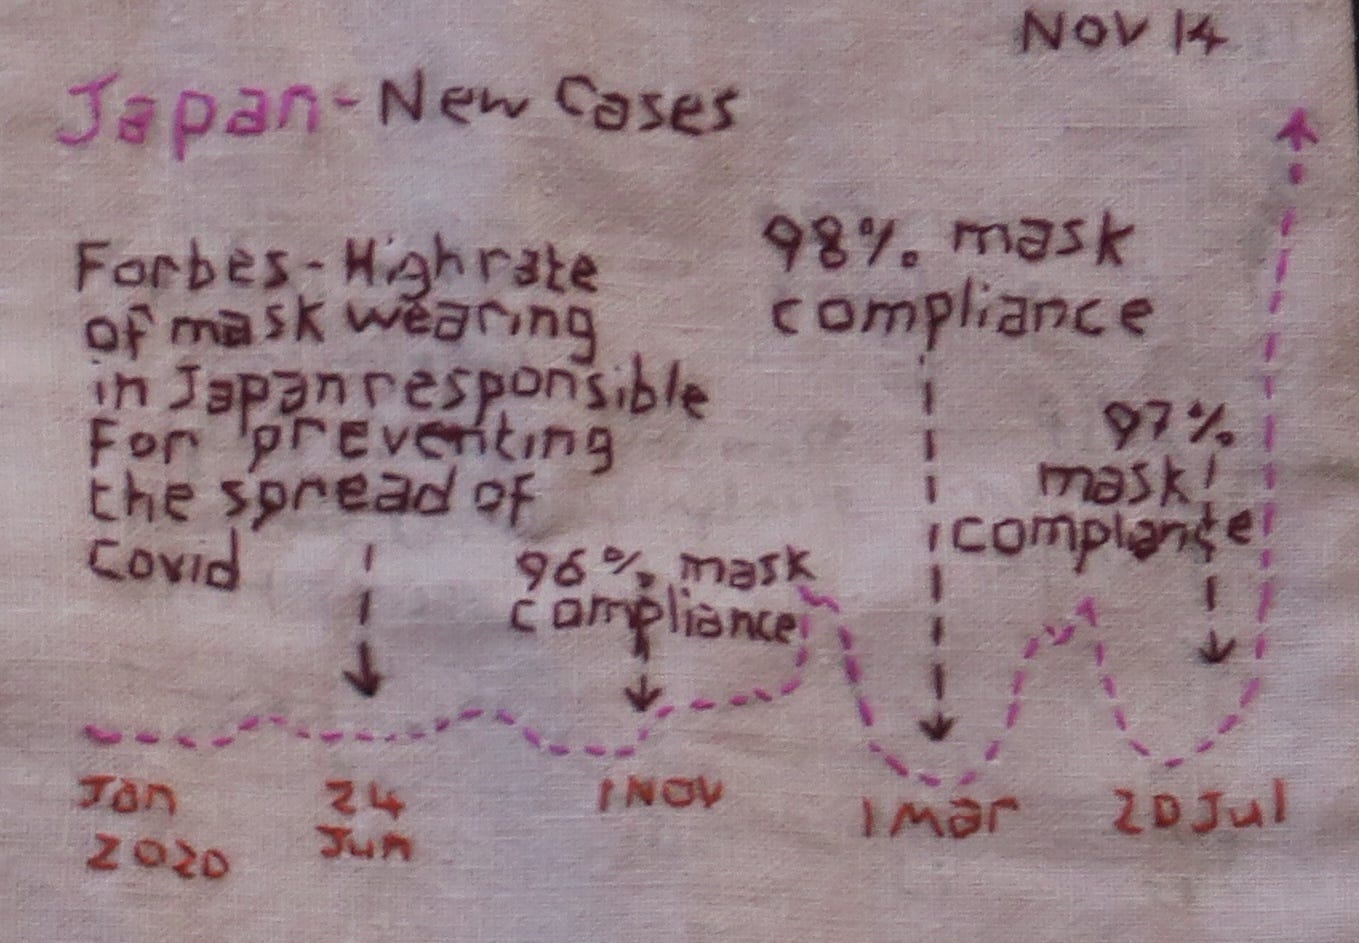 Nov 14
Japan-New Cases
Forbes-High rate
of mask wearing
in Japan responsible
For preventing
the spread of
Covid
96% mask
compliance
98% mask
compliance
97%
mask
complance
Jan
2020
24
Jun
1 Nov
1 Mar
20 Jul